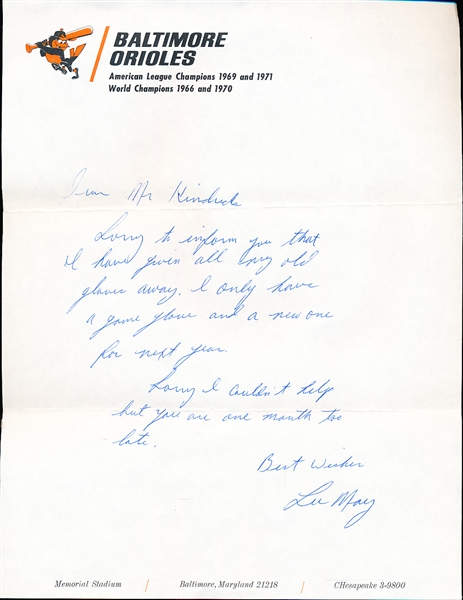 BALTIMORE
ORIOLES
American League Champions 1969 and 1971
World Champions 1966 and 1970
Dear Mr Kindrick
Sorry to inform you that
I have givin all my old
gloves away. I only have
a game glove and a new one
for next year.
Sorry I couldn't help
but you are one month too
late.
Best Wishes
Lee May
Memorial Stadium / Baltimore, Maryland 21218 / CHesapeake 3-9800